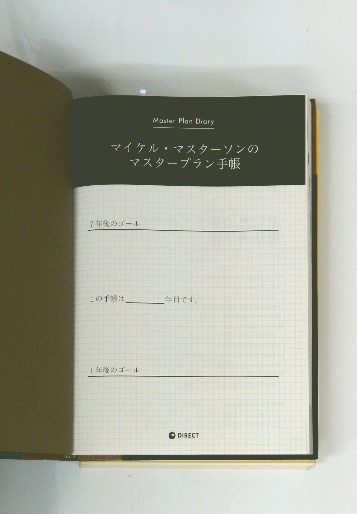 Master Plan Diary
マイケル・マスターソンの
マスタープラン手帳
7年後のゴール
この手帳は________年目です。
1年後のゴール
DIRECT